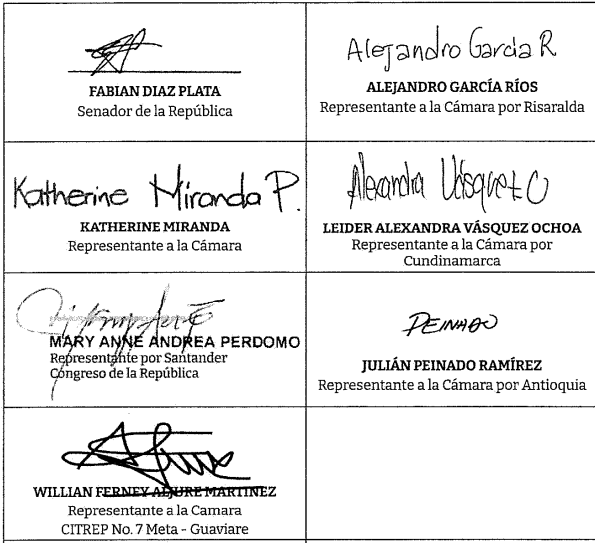 FABIAN DIAZ PLATA
Senador de la República
Alejandro García R
ALEJANDRO GARCÍA RÍOS
Representante a la Cámara por Risaralda
Katherine Miranda P.
KATHERINE MIRANDA
Representante a la Cámara
Alexandra Vásquez O
LEIDER ALEXANDRA VÁSQUEZ OCHOA
Representante a la Cámara por
Cundinamarca
MARY ANNE ANDREA PERDOMO
Representante por Santander
Congreso de la República
PEINADO
JULIÁN PEINADO RAMÍREZ
Representante a la Cámara por Antioquia
WILLIAN FERNEY ALJURE MARTINEZ
Representante a la Camara
CITREP No. 7 Meta - Guaviare